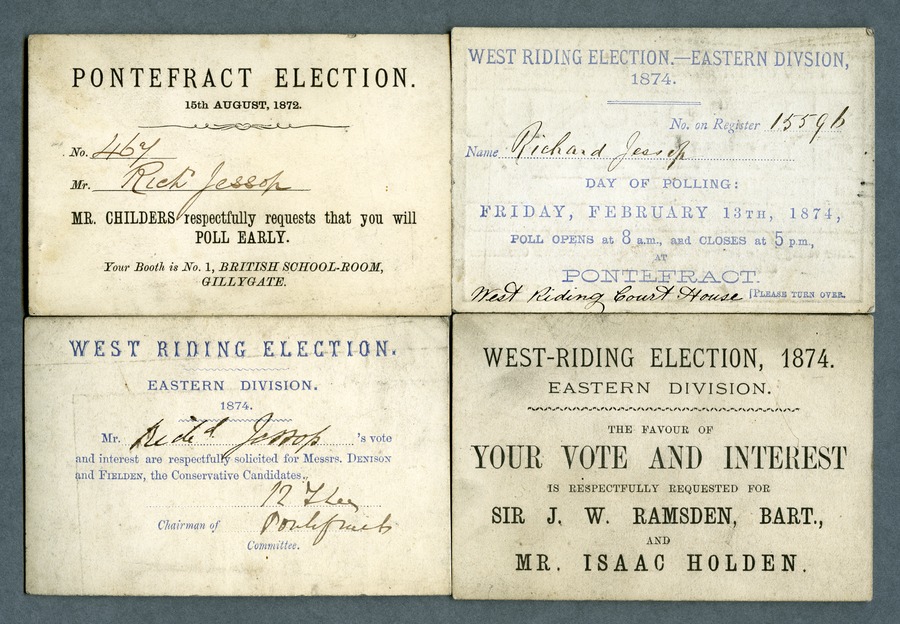 PONTEFRACT ELECTION.
15th AUGUST, 1872.
No. 467
Mr. Richd Jessop
MR. CHILDERS respectfully requests that you will
POLL EARLY.
Your Booth is No. 1, BRITISH SCHOOL-ROOM,
GILLYGATE.
WEST RIDING ELECTION.—EASTERN DIVSION,
1874.
No. on Register 15596
Name Richard Jessop
DAY OF POLLING:
FRIDAY, FEBRUARY 13TH, 1874,
POLL OPENS at 8 a.m., and CLOSES at 5 p.m.,
AT
PONTEFRACT.
West Riding Court House [PLEASE TURN OVER.
WEST RIDING ELECTION.
EASTERN DIVISION.
1874.
Mr. Richd Jessop 's vote
and interest are respectfully solicited for Messrs. DENISON
and FIELDEN, the Conservative Candidates.
Chairman of Pontefract
Committee.
WEST-RIDING ELECTION, 1874.
EASTERN DIVISION.
THE FAVOUR OF
YOUR VOTE AND INTEREST
IS RESPECTFULLY REQUESTED FOR
SIR J. W. RAMSDEN, BART.,
AND
MR. ISAAC HOLDEN.